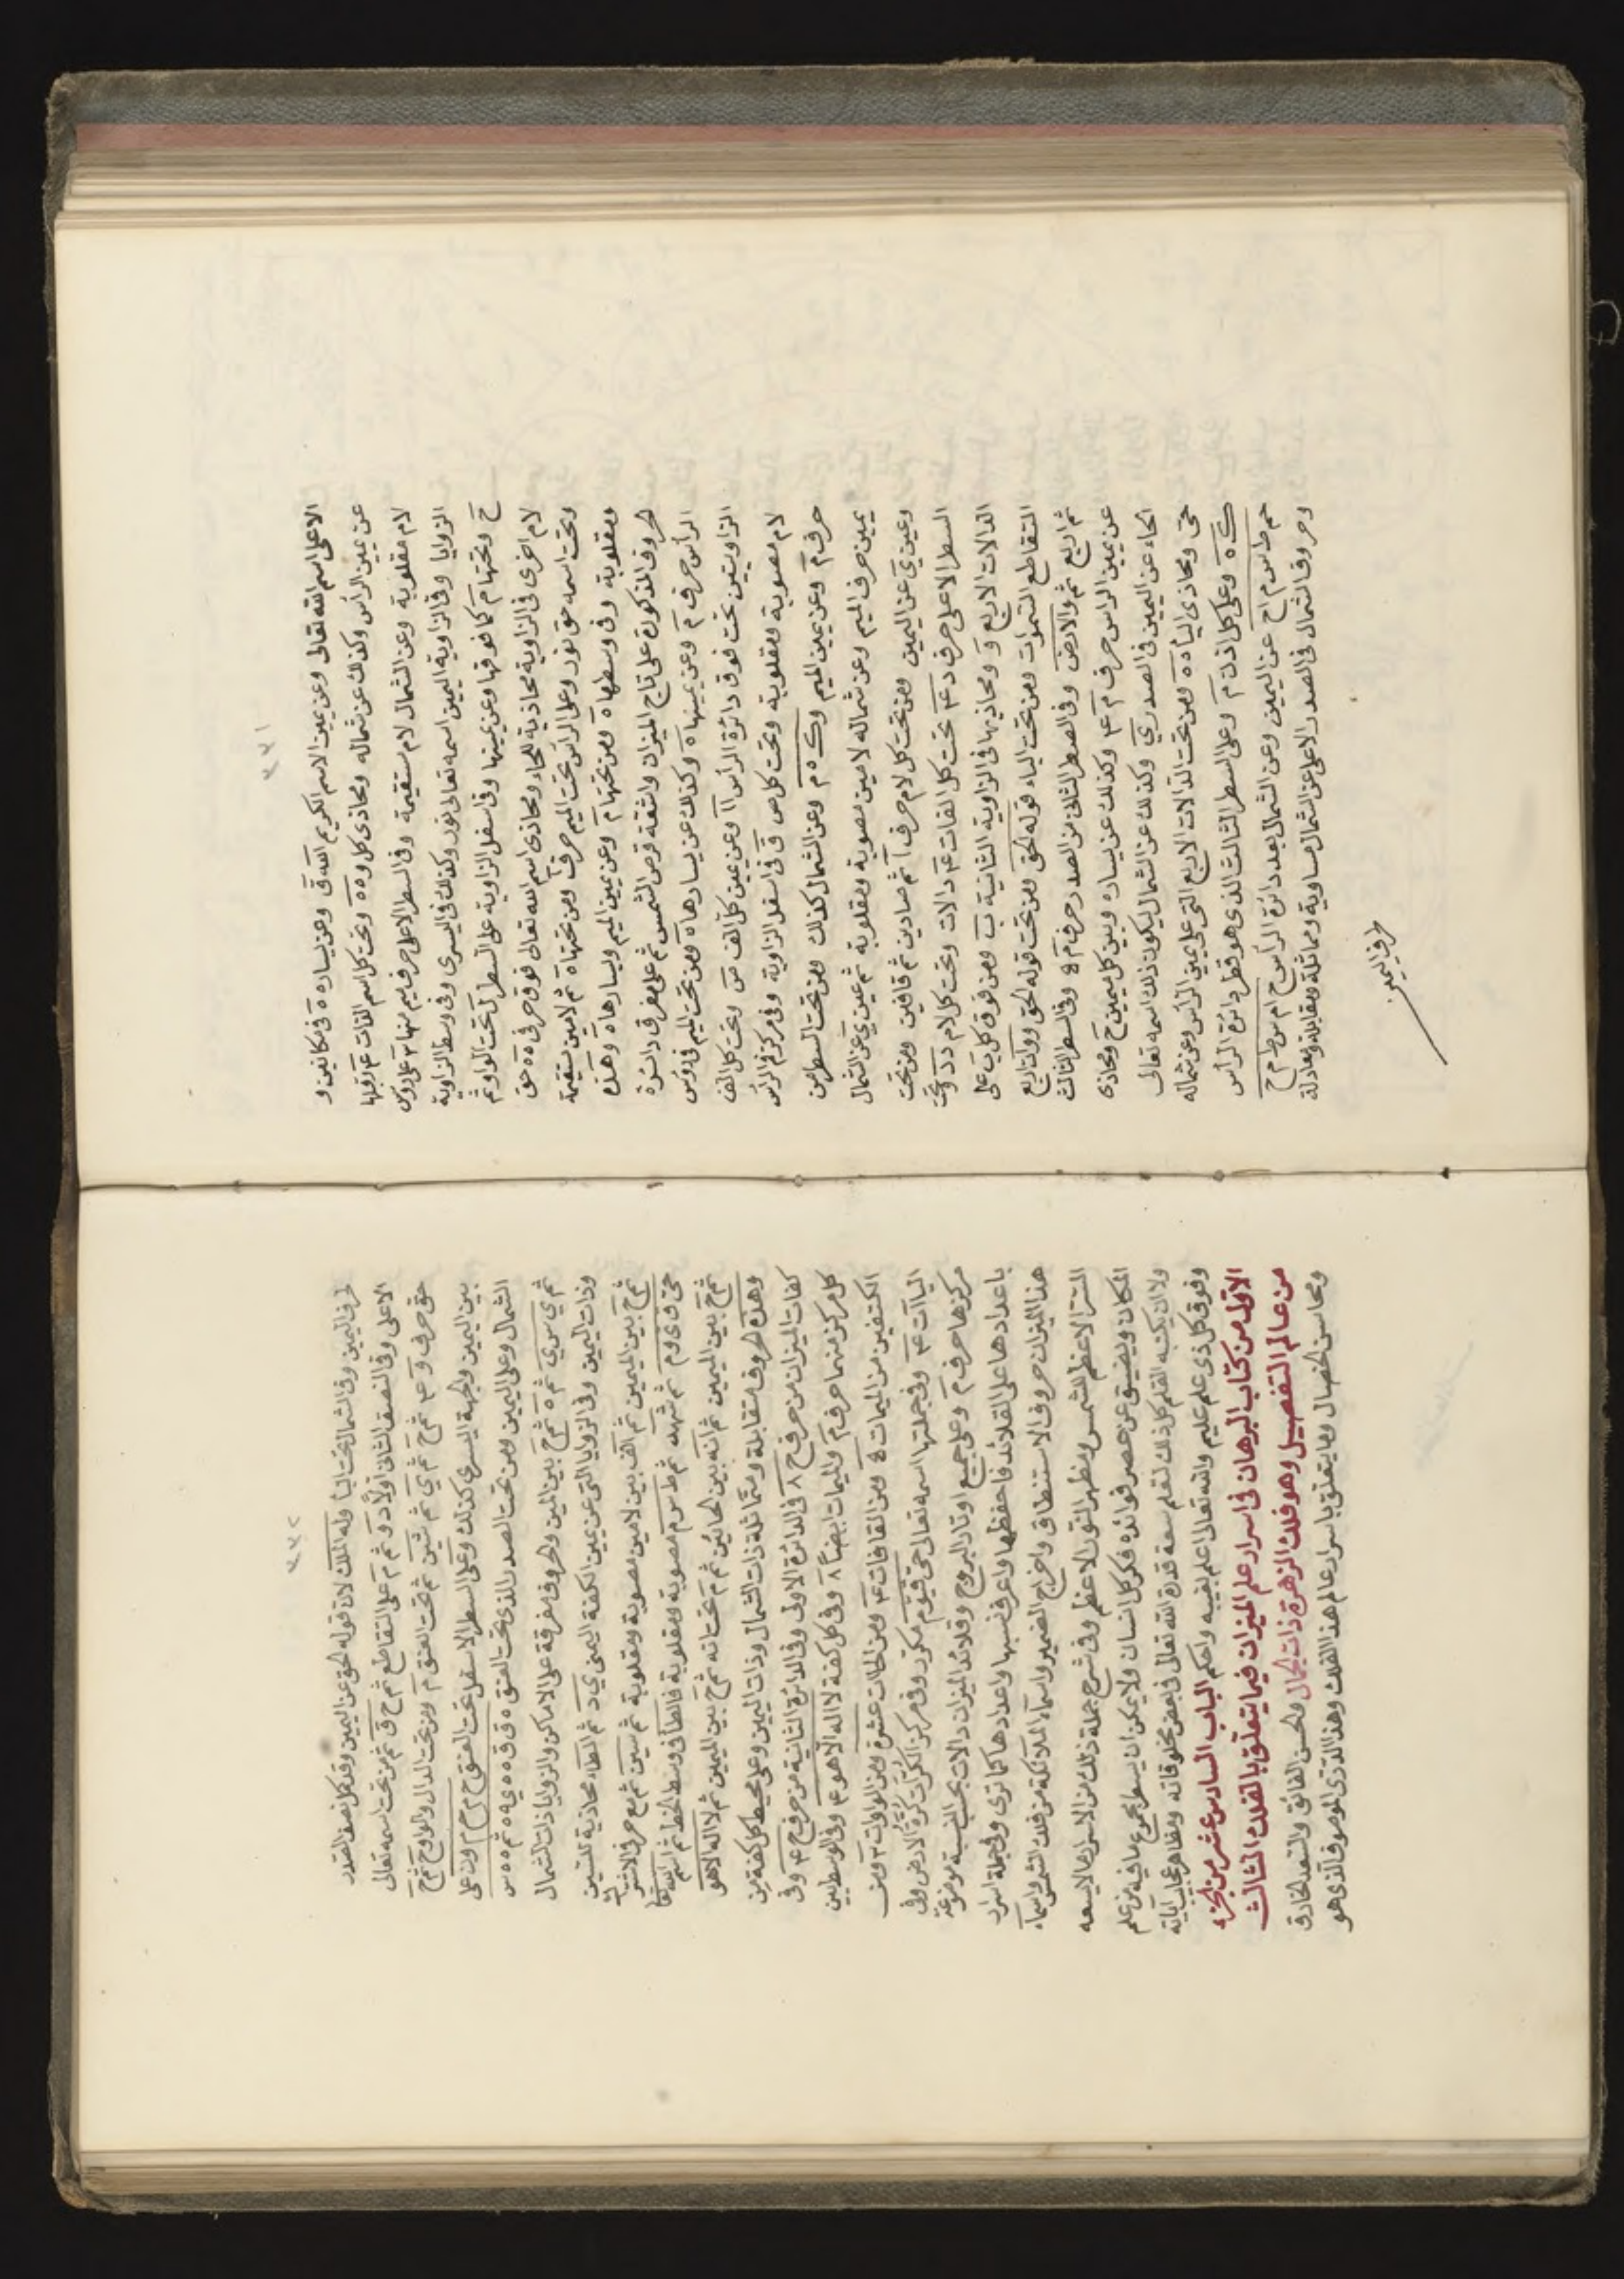 ٣٣١
الاعلى اسم الله تعالى وعن يمين الاسم الكريم الله ق وعن يساره ه فى مكانين و
عن يمين الرأس وكذلك عن شماله ومحاذى كل و ه ه وتحت كل اسم الفات ٤
لام مقلوبة وعن الشمال لام مستقيمة وفى السطر الاعلى حرف ميم منها ٣ على رؤس
الزوايا وفى الزاوية اليمين اسمه تعالى نور وكذلك فى اليسرى وفى وسط الزاوية
ح وتحتها م كما فوقها وعن يمينها وفى اسفل الزاوية على السطر تحت الواو ثم
لام اخرى فى الزاوية محاذية للحاء ومحاذى اسم الله تعالى فوق حرفى ه ه حق
وتحت اسمه حق نور وعلى الرأس تحت الميم حرف ا ومن تحتها ه ثم لامين مستقيمة
ومقلوبة وفى وسطها ه ومن تحتها م وعن يمين الميم ويسارها ه وهذه
الحروف المذكورة على تاج الميزان واشقة قرص الشمس ثم على مفرق دائرة
الرأس حرف م وعن يمينها ه وكذلك عن يسارها ه ومن تحت الميم فى رؤس
الزاويتين تحت فوق دائرة الرأس اا وعن يمين كل الف س وتحت كل الف
لام مصوبة ومقلوبة وتحت كل ص ق فى اسفل الزاوية وفى مركز فم الرأس
حرف م وعن يمين الميم و ك ه م وعن الشمال كذلك ومن تحت السطر من
يمين حرف الميم وعن شماله لامين مصوبة ومقلوبة ثم عين ى عن الشمال
وعين ى عن اليمين ومن تحت كل لام حرف ا ثم صادين ثم قافين ومن تحت
السطر الاعلى حرف د ٤ تحت كل الفات ٤ دالات وتحت كل لام د د وتحت
الدالات الاربع و ومحاذيها فى الزاوية الثانية ب ومن فوق كل ب على
التقاطع السموات ومن تحت الباء قوله الحق ومن تحت قوله الحق وواات اربع
ثم اربع ثم والارض وفى الصطر الثانى من الصدر حرف م ٥ وفى السطر الثالث
عن يمين الراس حرف م ٤ وكذلك عن يساره وبين كل ميمين ح ومحاذى
الحاء عن اليمين فى الصدر ى وكذلك عن الشمال ليكون ذلك اسمه تعالى
حى ومحاذى الياء ه ه ومن تحت الدالات الاربع التى على يمين الرأس وعن شماله
ك ه وعلى كل اذن م وعلى السطر الثالث الذى هو قطر دائرة الرأس
حم طس م اح عن اليمين وعن الشمال بعد دائرة الرأس ح ام س ط م ح
وحروف الشمال فى الصدر الاعلى عن الشمال مساوية ومماثلة ومقابلة ومعادلة
لحرف اليمين
٣٣٢
لحرف اليمين وفى الشمال تحت اليا وله الملك لان قوله الحق عن اليمين وقد كمل نصف الصدر
الاعلى وفى النصف الثانى اولا د و ثم م على التقاطع ثم ح ق ثم من تحت اسمه تعالى
حق حرف و ٣ ثم ح ثم ى ثم شين ثم تحت العنق م ومن تحت الدال والواو ح ثم ح
بين اليمين والجهة اليسرى كذلك وعلى السطر الاسفل تحت العنق ح م ح م ٢ ون على
الشمال وعلى اليمين ومن تحت الصدر الذى تحت العنق ه ق ق ه ه ى ه ثم ه ه س
ثم ى س ى ثم ه ثم ح بين المين والحروف مفرقة على الاماكن والزوايا ذات الشمال
وذات اليمين وفى الزوايا التى عن يمين الكفة اليمنى ى د ثم الطاء محاذية للسين
ثم ح بين الميمين ثم الف بين لامين مصوبة ومقلوبة ثم سين ثم مع حرفى الاشتر
حى ق ى و م ثم شهد ثم ط س م مصوبة ومقلوبة فالطا فى وسط الخط ثم اسم الله تعالى
ثم ح بين الميمين ثم انه بين الحائين ثم م تحت انه ثم ح بين الميمين ثم لا اله الا هو
وهذه الحروف متقابلة ومتماثلة ذات الشمال وذات اليمين وعلى محيط كل كفة من
كفات الميزان من حرف ح ٨ فى الدائرة الاولى وفى الدائرة الثانية من حرف ح ٤ وفى
كل مركز منهما حرف م والميمات ايضاً ٨ وفى كل كفة لا اله الا هو ٤ وفى الوسط بين
الكفتين من الميمات ٥ ومن القافات ٤ ومن الحاات عشرة ومن الواوات ٣ ومن
الياآت ٤ وفى جملتها اسمه تعالى حى قيوم مكرر وفى مركز الكرات كرة الارض وفى
مركزها حرف م وعلى جميع اوتاد البروج وقلائد الميزان دالات بحسب النسبة موضوعة
باعدادها على القلائد فاحفظها واعرف نسبها واعدادها كما ترى وفى جملة اسرار
هذا الميزان حروف الاستنطاق واخراج الضمير واسماء الملائكة من فلك الشمس واسماء
الستر الاعظم للشمس ومظهر النور الاعظم وفى شرح جملة ذلك من الاسرار ما لا يسعه
المكان ويضيق عن حصر فوائده فكر كل انسان ولا يمكن ان يسطر مجموع ما فيه من علم
ولا ان يكتبه القلم كل ذلك لتعلم سعة قدرة الله تعالى فى بعض مخلوقاته ومظاهر عجايب آياته
وفوق كل ذى علم عليم والله تعالى اعلم بغيبه واحكم الباب السادس عشر من الجزء
الاول من كتاب البرهان فى اسرار علم الميزان فيما يتعلق بالفلك الثالث
من عالم التفصيل وهو فلك الزهرة ذات الجمال والحسن الفائق والسعد الخارق
ومحاسن الخصال وما يتعلق باسرار عالم هذا الفلك وهذا الذى الموصوف الذى هو